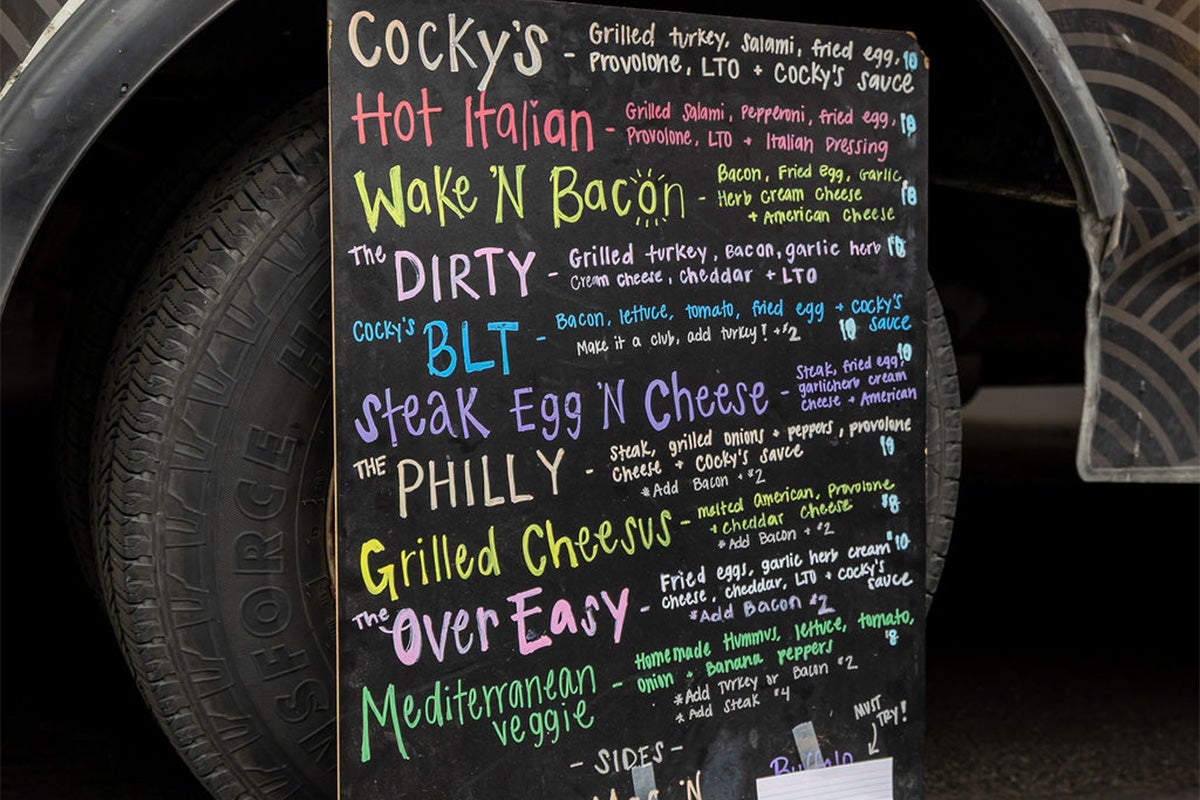 Cocky's - Grilled turkey, salami, fried egg, 10
Provolone, LTO + Cocky's sauce
Hot Italian - Grilled Salami, Pepperoni, fried egg,
Provolone, LTO + Italian Dressing
Wake 'N Bacon - Bacon, Fried Egg, Garlic
Herb cream cheese
+ American cheese
The DIRTY - Grilled turkey, Bacon, garlic herb
Cream cheese, cheddar + LTO
Cocky's BLT - Bacon, lettuce, tomato, fried egg + cocky's
sauce
10
Make it a club, add turkey! +$2
Steak Egg 'N Cheese - Steak, fried egg, 10
garlicherb cream
cheese + American
THE PHILLY - Steak, grilled onions + peppers, provolone
Cheese + Cocky's sauce
*Add Bacon + $2
Grilled Cheesus - melted American, Provolone
+ cheddar cheese $8
*Add Bacon + $2
The Over Easy - Fried eggs, garlic herb cream $10
cheese, cheddar, LTO + cocky's
sauce
*Add Bacon $2
Mediterranean
veggie - Homemade Hummus, lettuce, tomato,
Onion + Banana peppers $8
*Add Turkey or Bacon $2
*Add Steak $4
MUST
TRY!
- SIDES -
Buffalo
'N
SFORCE H